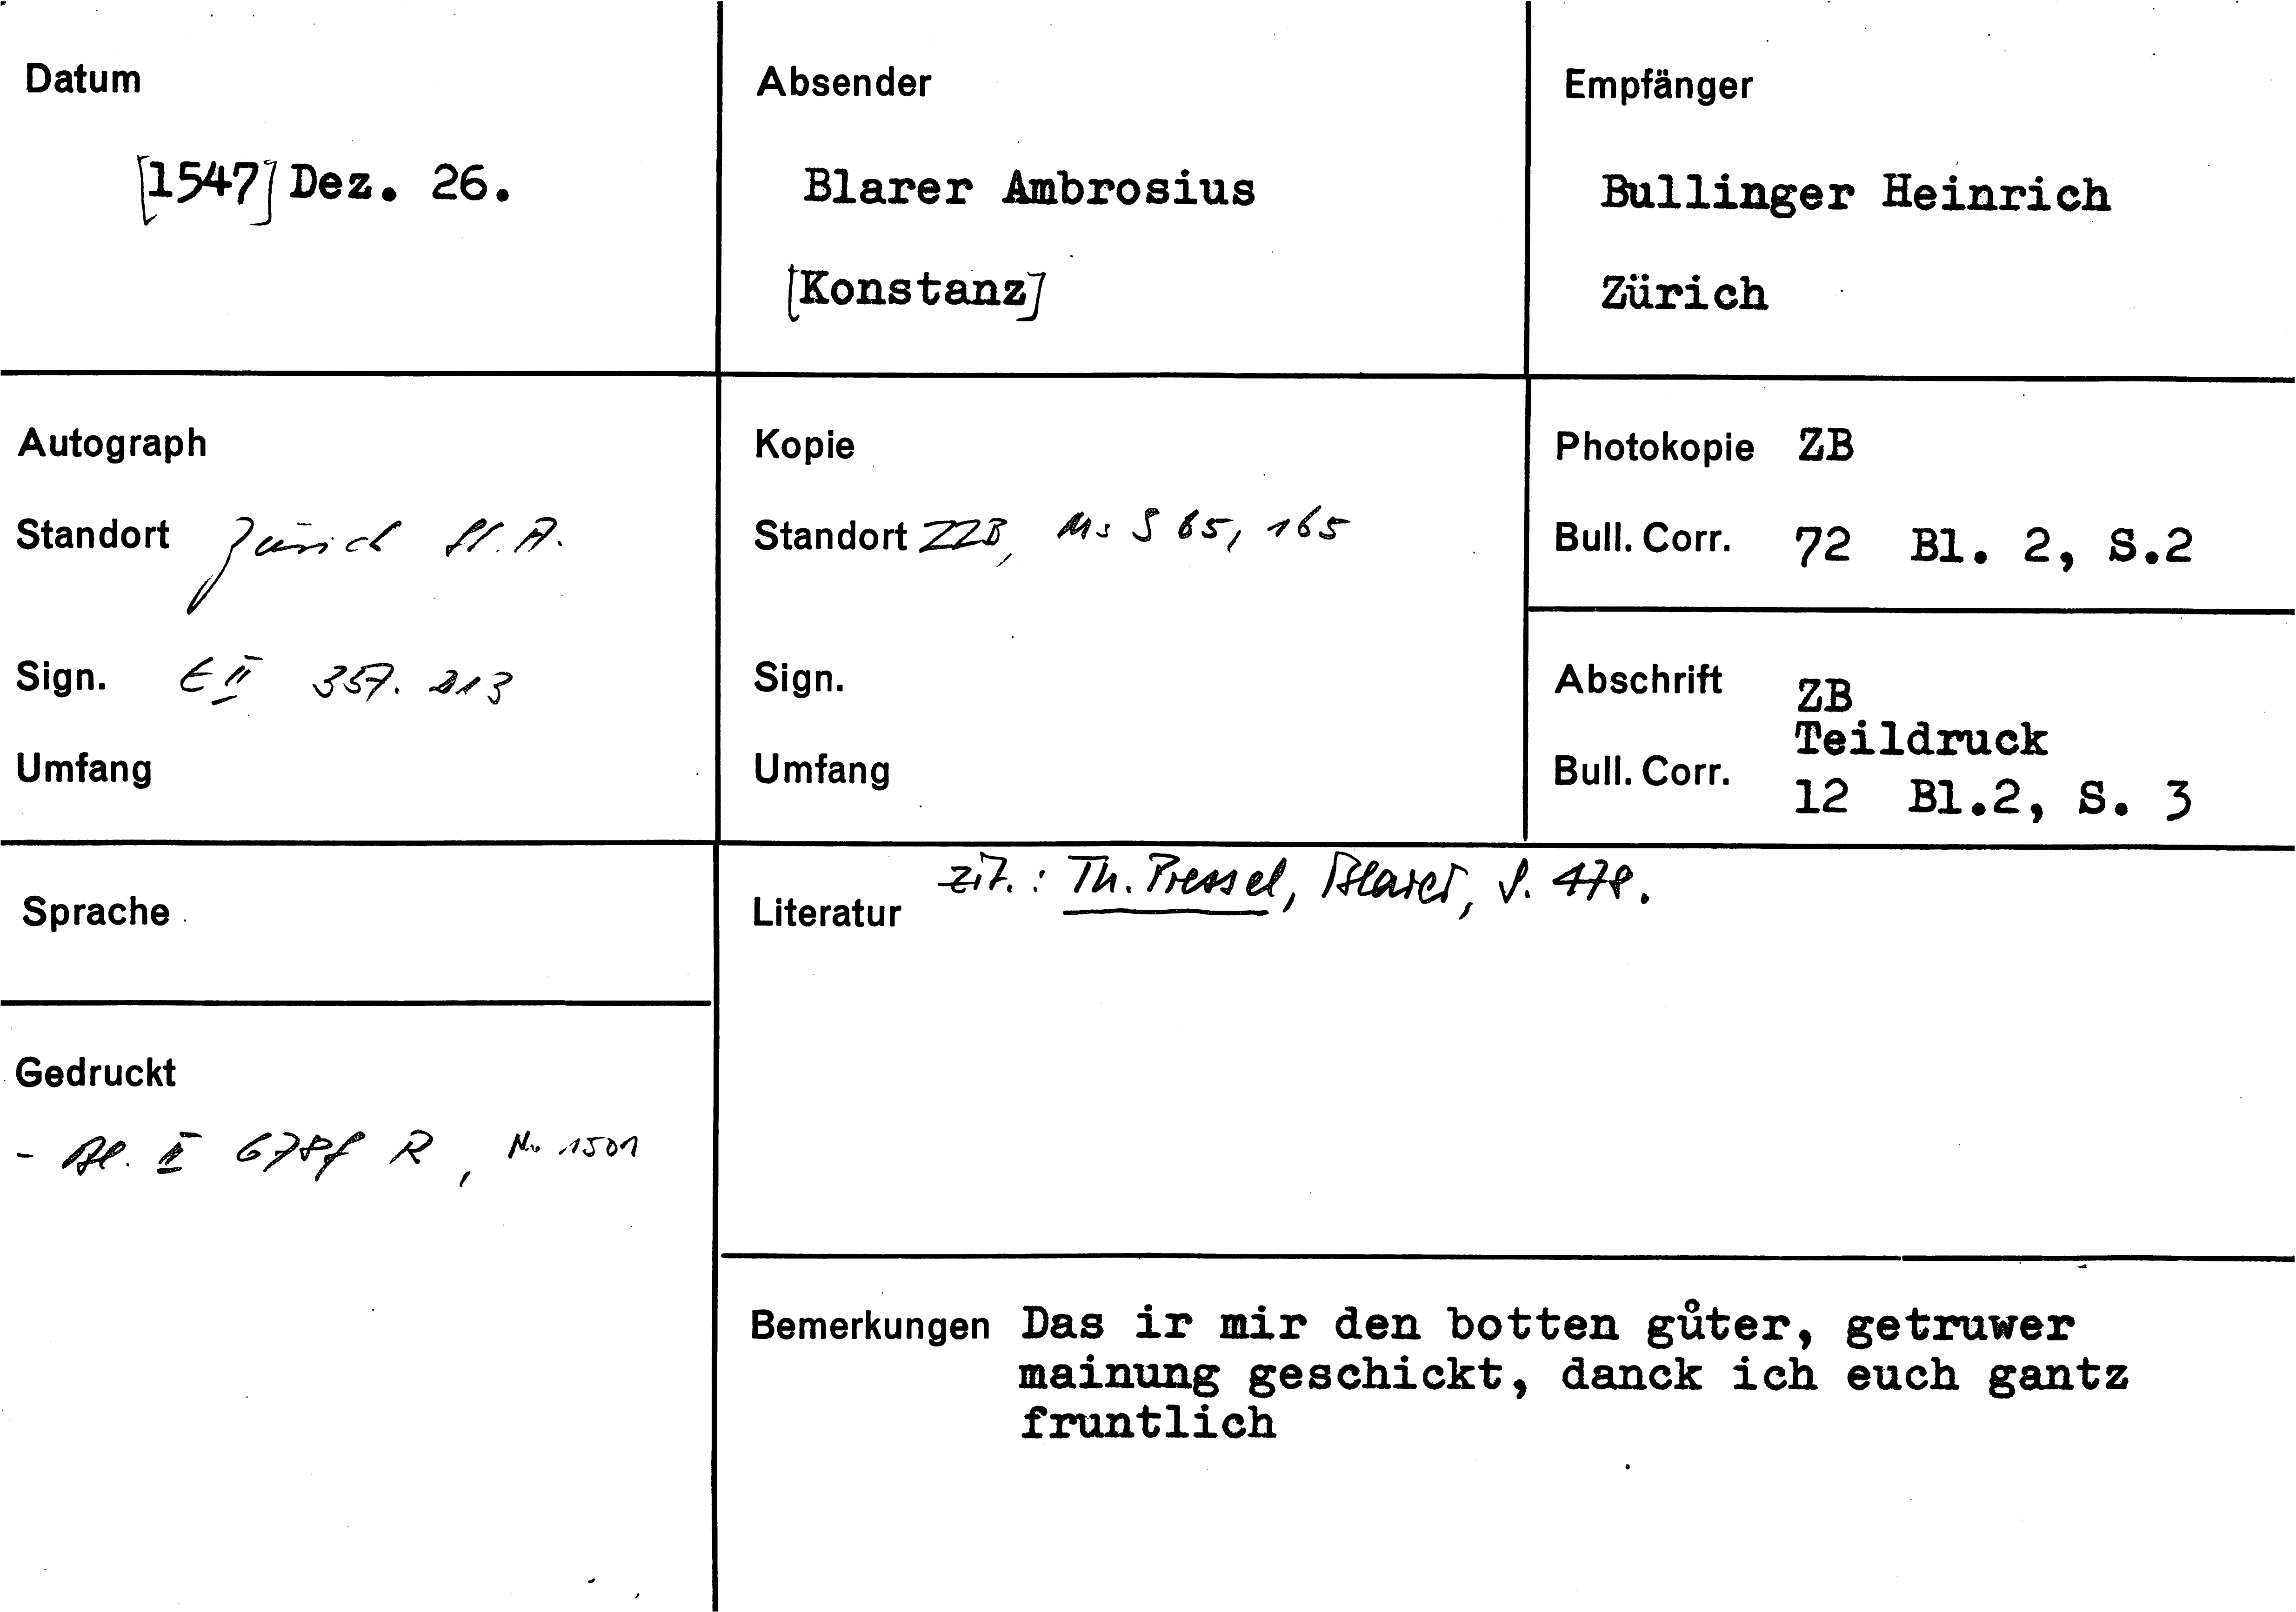 Datum
[1547] Dez. 26.
Absender
Blarer Ambrosius
[Konstanz]
Empfänger
Bullinger Heinrich
Zürich
Autograph
Standort Zürich St. A.
Sign. E II 357. 213
Umfang
Kopie
Standort ZZB, Ms S 65, 165
Sign.
Umfang
Photokopie ZB
Bull. Corr. 72 Bl. 2, S.2
Abschrift ZB
Teildruck
Bull. Corr. 12 Bl.2, S. 3
Sprache
Gedruckt
- Bl. II 678f R, Nr. 1501
Literatur zit.: Th. Pressel, Blarer, S. 478.
Bemerkungen Das ir mir den botten gůter, getruwer
mainung geschickt, danck ich euch gantz
fruntlich